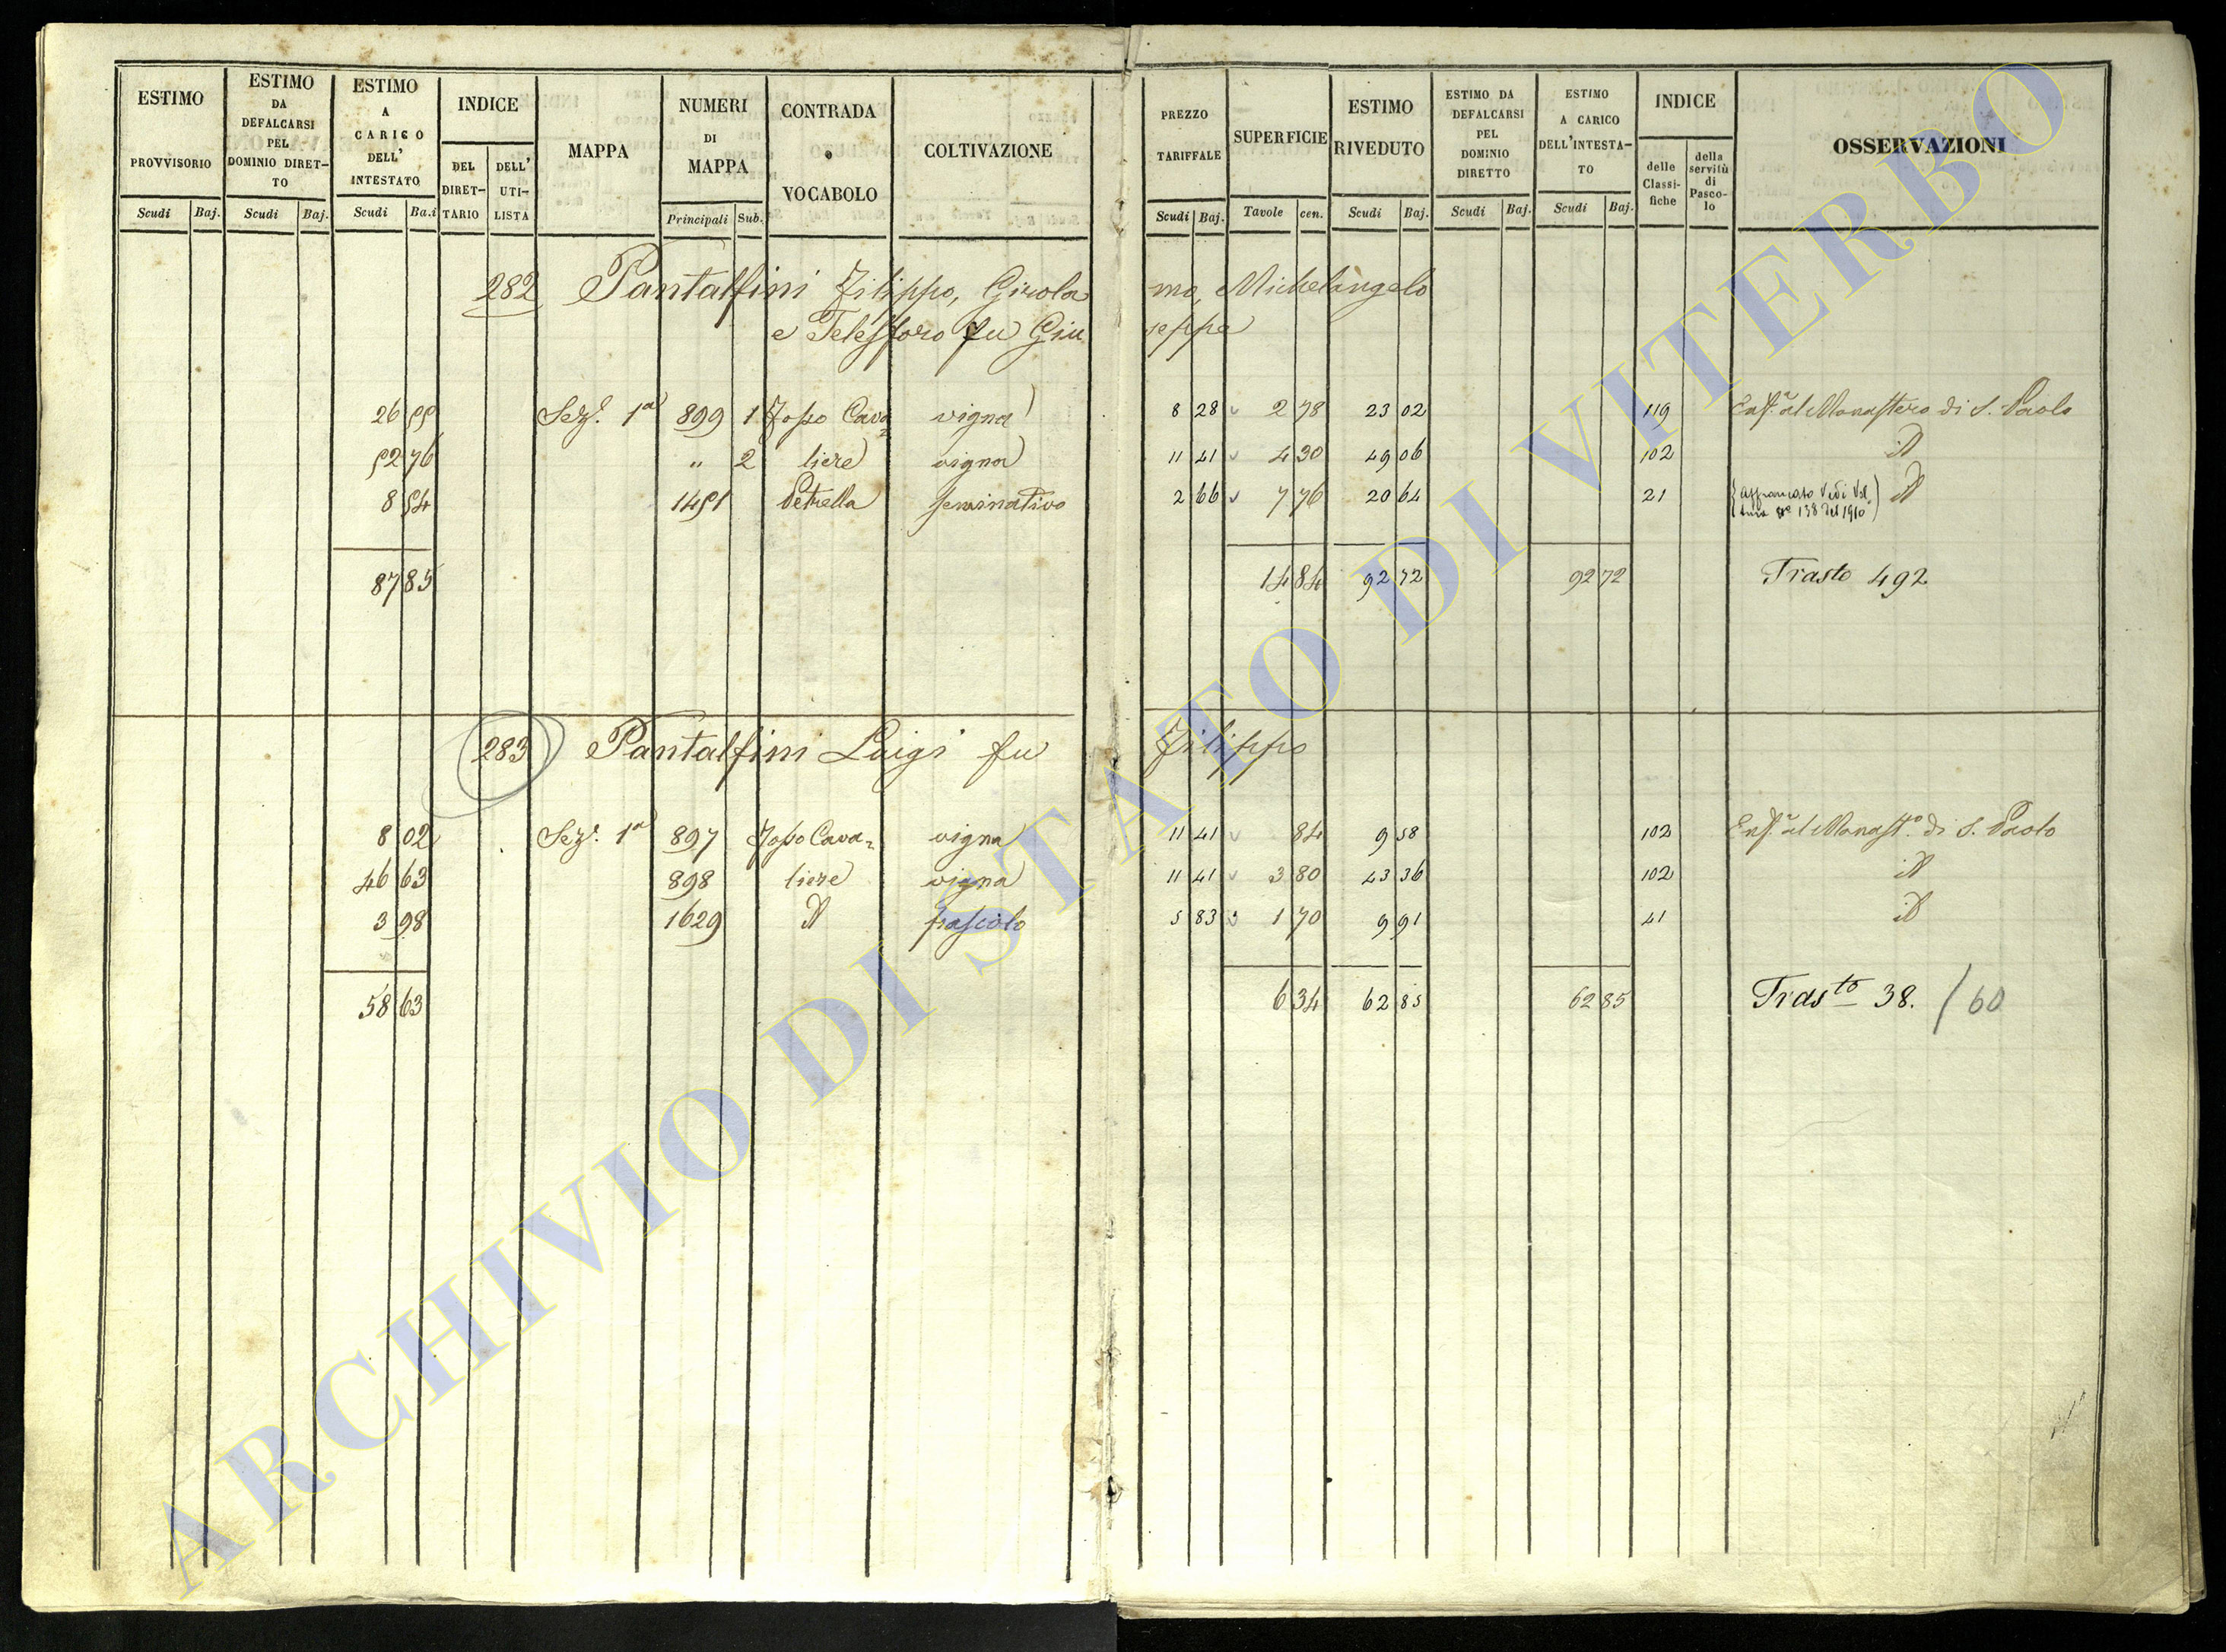 ESTIMO PROVVISORIO
Scudi Baj.
ESTIMO DA DEFALCARSI PEL DOMINIO DIRET-TO
Scudi Baj.
ESTIMO A CARICO DELL' INTESTATO
Scudi Ba.i
INDICE
DEL DIRET-TARIO
DELL' UTI-LISTA
MAPPA
NUMERI DI MAPPA
Principali Sub.
CONTRADA o VOCABOLO
COLTIVAZIONE
PREZZO TARIFFALE
Scudi Baj.
SUPERFICIE
Tavole cen.
ESTIMO RIVEDUTO
Scudi Baj.
ESTIMO DA DEFALCARSI PEL DOMINIO DIRETTO
Scudi Baj.
ESTIMO A CARICO DELL'INTESTA-TO
Scudi Baj.
INDICE
delle Classi-fiche
della servitù di Pasco-lo
OSSERVAZIONI
282 Pantalfini Filippo, Girola mo, Michelangelo
e Telesforo fu Giu seppe
26 55 Sez.e 1a 899 1 Fosso Cava= vigna 8 28 2 78 23 02 119 Enf.a al Monastero di S. Paolo
52 76 " 2 liere vigna 11 41 4 30 49 06 102 id
8 54 1451 Petrella seminativo 2 66 7 76 20 64 21 (affrancato Vedi Vol. No 138 del 1910) id
87 85 14 84 92 72 92 72 Trasto 492
283 Pantalfini Luigi fu Filippo
8 02 Sez.e 1a 897 Fosso Cava= vigna 11 41 84 9 58 102 Enf.a al Monast.o di S. Paolo
46 63 898 liere vigna 11 41 3 80 43 36 102 id
3 98 1629 id pascolo 5 83 1 70 9 91 41 id
58 63 6 34 62 85 62 85 Trasto 38. / 60
ARCHIVIO DI STATO DI VITERBO